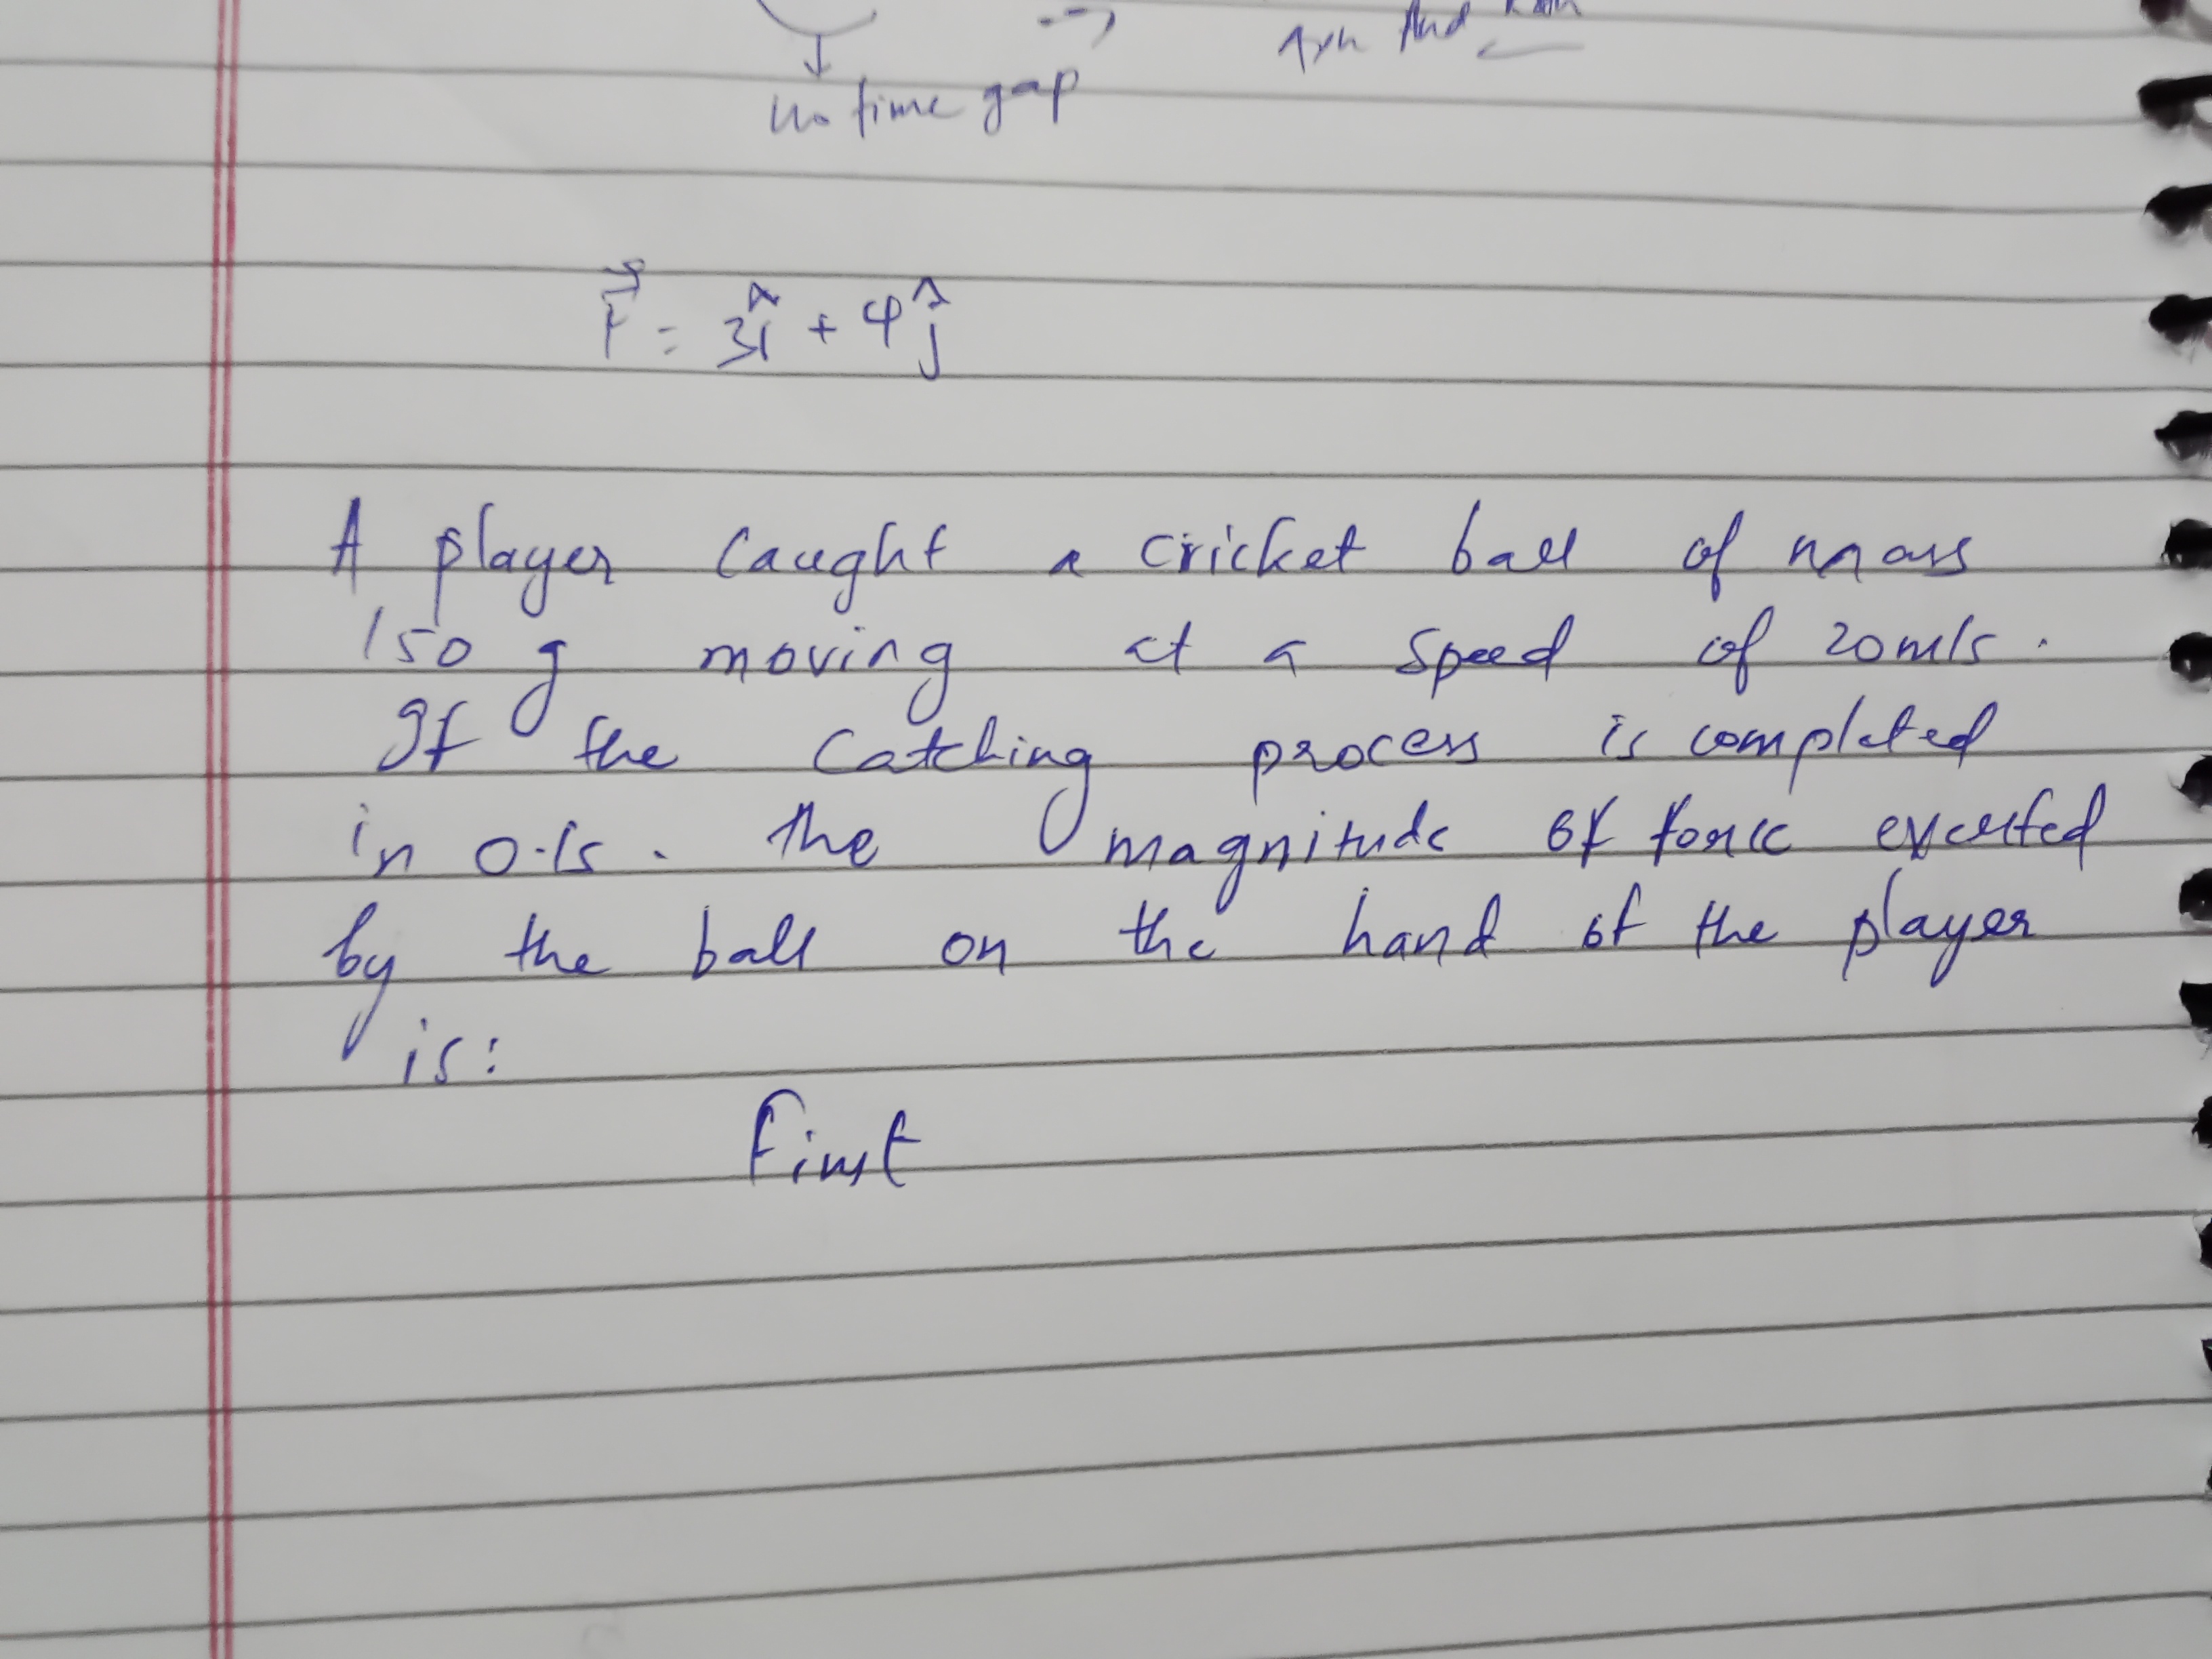 no time gap
F⃗ = 3î + 4ĵ
A player caught a cricket ball of mass
150 g moving at a speed of 20m/s.
If the catching process is completed
in 0.1s. the magnitude of force exerted
by the ball on the hand of the player
is:
First